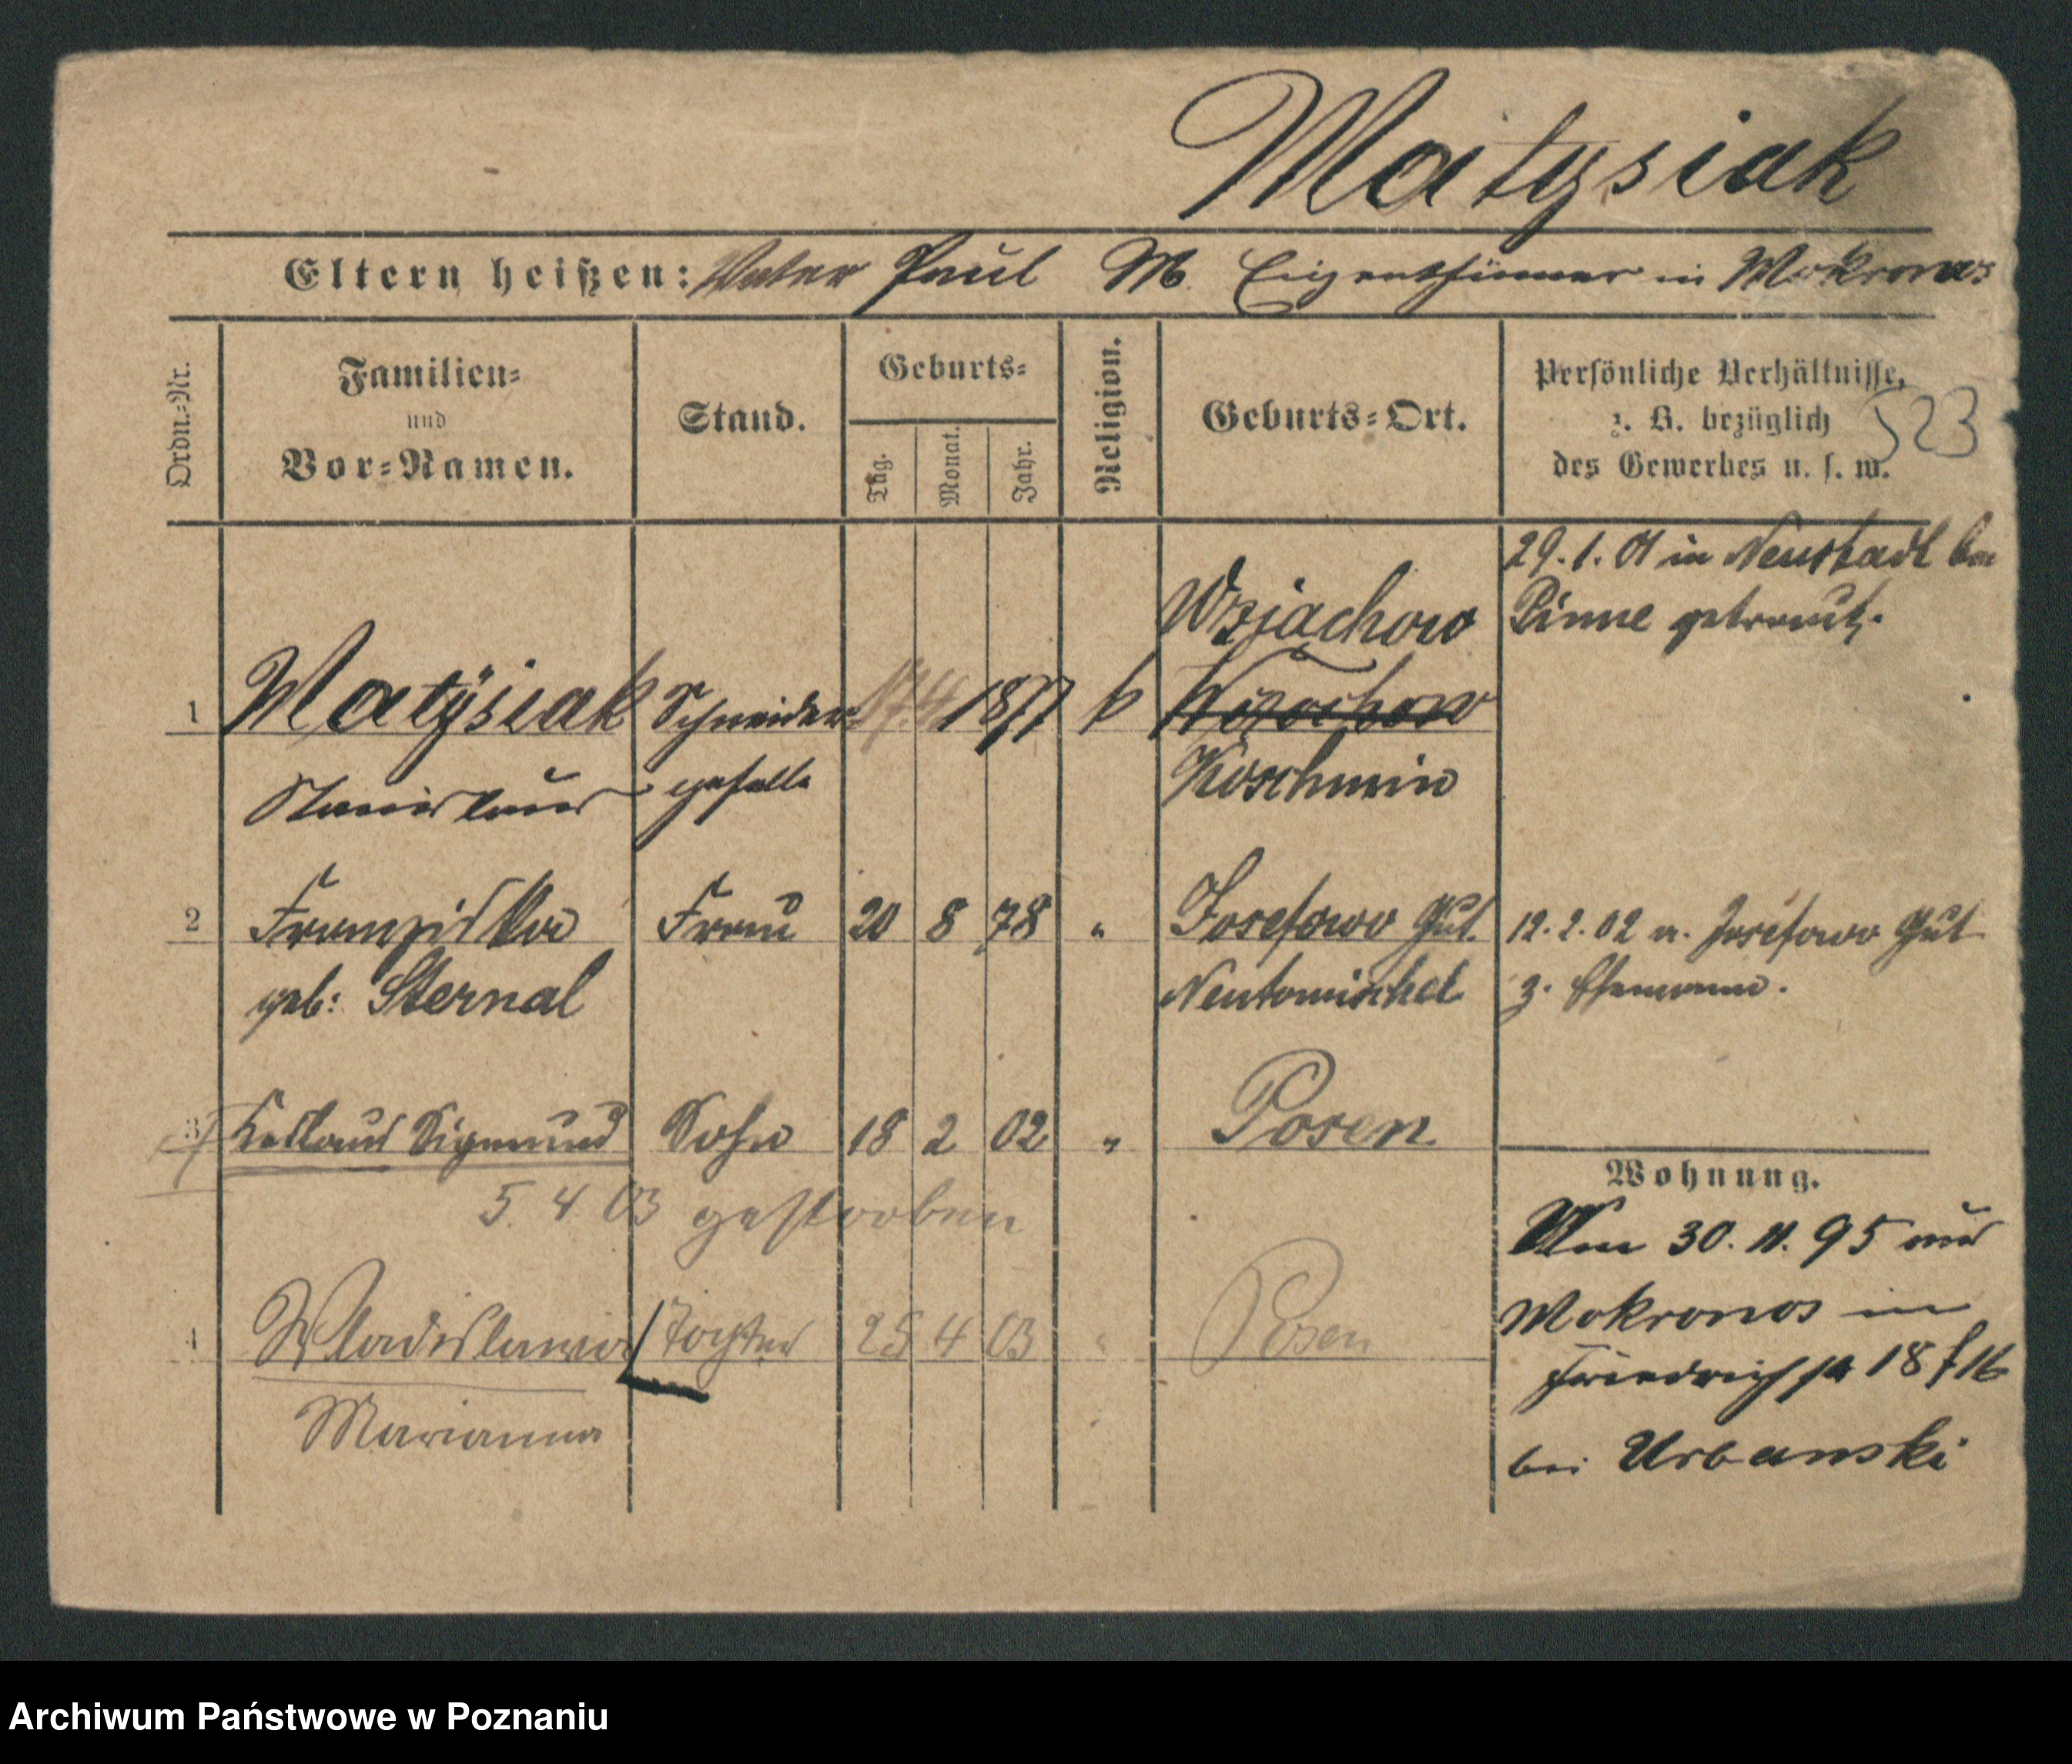 Matysiak
Eltern heißen: Vater Paul M. Eigenthümer in Mokronos
Ordn.-Nr.
Familien-
und
Vor-Namen.
Stand.
Geburts-
Tag.
Monat.
Jahr.
Religion.
Geburts-Ort.
Persönliche Verhältnisse,
z. B. bezüglich
des Gewerbes u. s. w.
523
29. 1. 01 in Neustadt bei
Pinne getraut.
Wziachow
1 Matysiak Schneider 17 4 1877 k
Stanislaus geselle Koschmin
2 Franziska Frau 20 8 78 " Josefowo Gut 12. 2. 02 a. Josefowo Gut
geb: Sternal Neutomischel z. Ehemann.
3 Sigmund Sohn 18 2 02 " Posen
5. 4. 03 gestorben
Wohnung.
4 Wladislawa Tochter 25 4 03 " Posen
Marianna
30. 11. 95 aus
Mokronos in
Friedrichstr 18
bei Urbanski
Archiwum Państwowe w Poznaniu